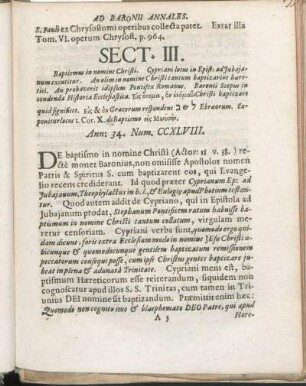 AD BARONII ANNALES.
S. Pauli ex Chrysostomi operibus collecta patet. Extat illa
Tom. VI. operum Chrysost. p. 964.
SECT. III.
Baptismus in nomine Christi. Cypriani locus in Epist: ad Jubaja-
num excutitur. An olim in nomine Christi tantum baptizarint hæreti-
ci. An probaverit id ipsum Pontifex Romanus. Baronii Scopus in
condenda Historia Ecclesiastica.
quid significet. εἰς & ἐν Græcorum respondent ל & ב Ebræorum. Ex-
ponitur locus 1. Cor. X. de baptismo εἰς Μωϋσῆν.
Ann: 34. Num. CCXLVIII.
DE baptismo in nomine Christi (Actor: 11 v. 38.) re-
ctè monet Baronius, non omisisse Apostolos nomen
Patris & Spiritus S. cum baptizarent eos, qui Evange-
lio recens crediderant. Id quod præter Cyprianum Ep: ad
Jubajanum, Theophylactus in h. l. & Eulogius apud Photium testan-
tur. Quod autem addit de Cypriano, qui in Epistola ad
Jubajanum prodat, Stephanum Pontificem ratum habuisse ba-
ptismum in nomine Christi tantum collatum, virgulam me-
retur censoriam. Cypriani verba sunt, quomodo ergo qui-
dam dicunt, foris extra Ecclesiam modo in nomine Jesu Christi u-
bicunque & quomodocunque gentilem baptizatum remissionem
peccatorum consequi posse, cum ipse Christus gentes baptizari ju-
beat in plena & adunata Trinitate. Cypriani mens est, ba-
ptismum Hæreticorum esse reiterandum, siquidem non
cognoscatur apud illos S. S. Trinitas, cum tamen in Tri-
unius DEI nomine sit baptizandum. Præmittit enim hæc:
Quomodo non cognito imo & blasphemato DEO Patre, qui apud
A 3 Hære-